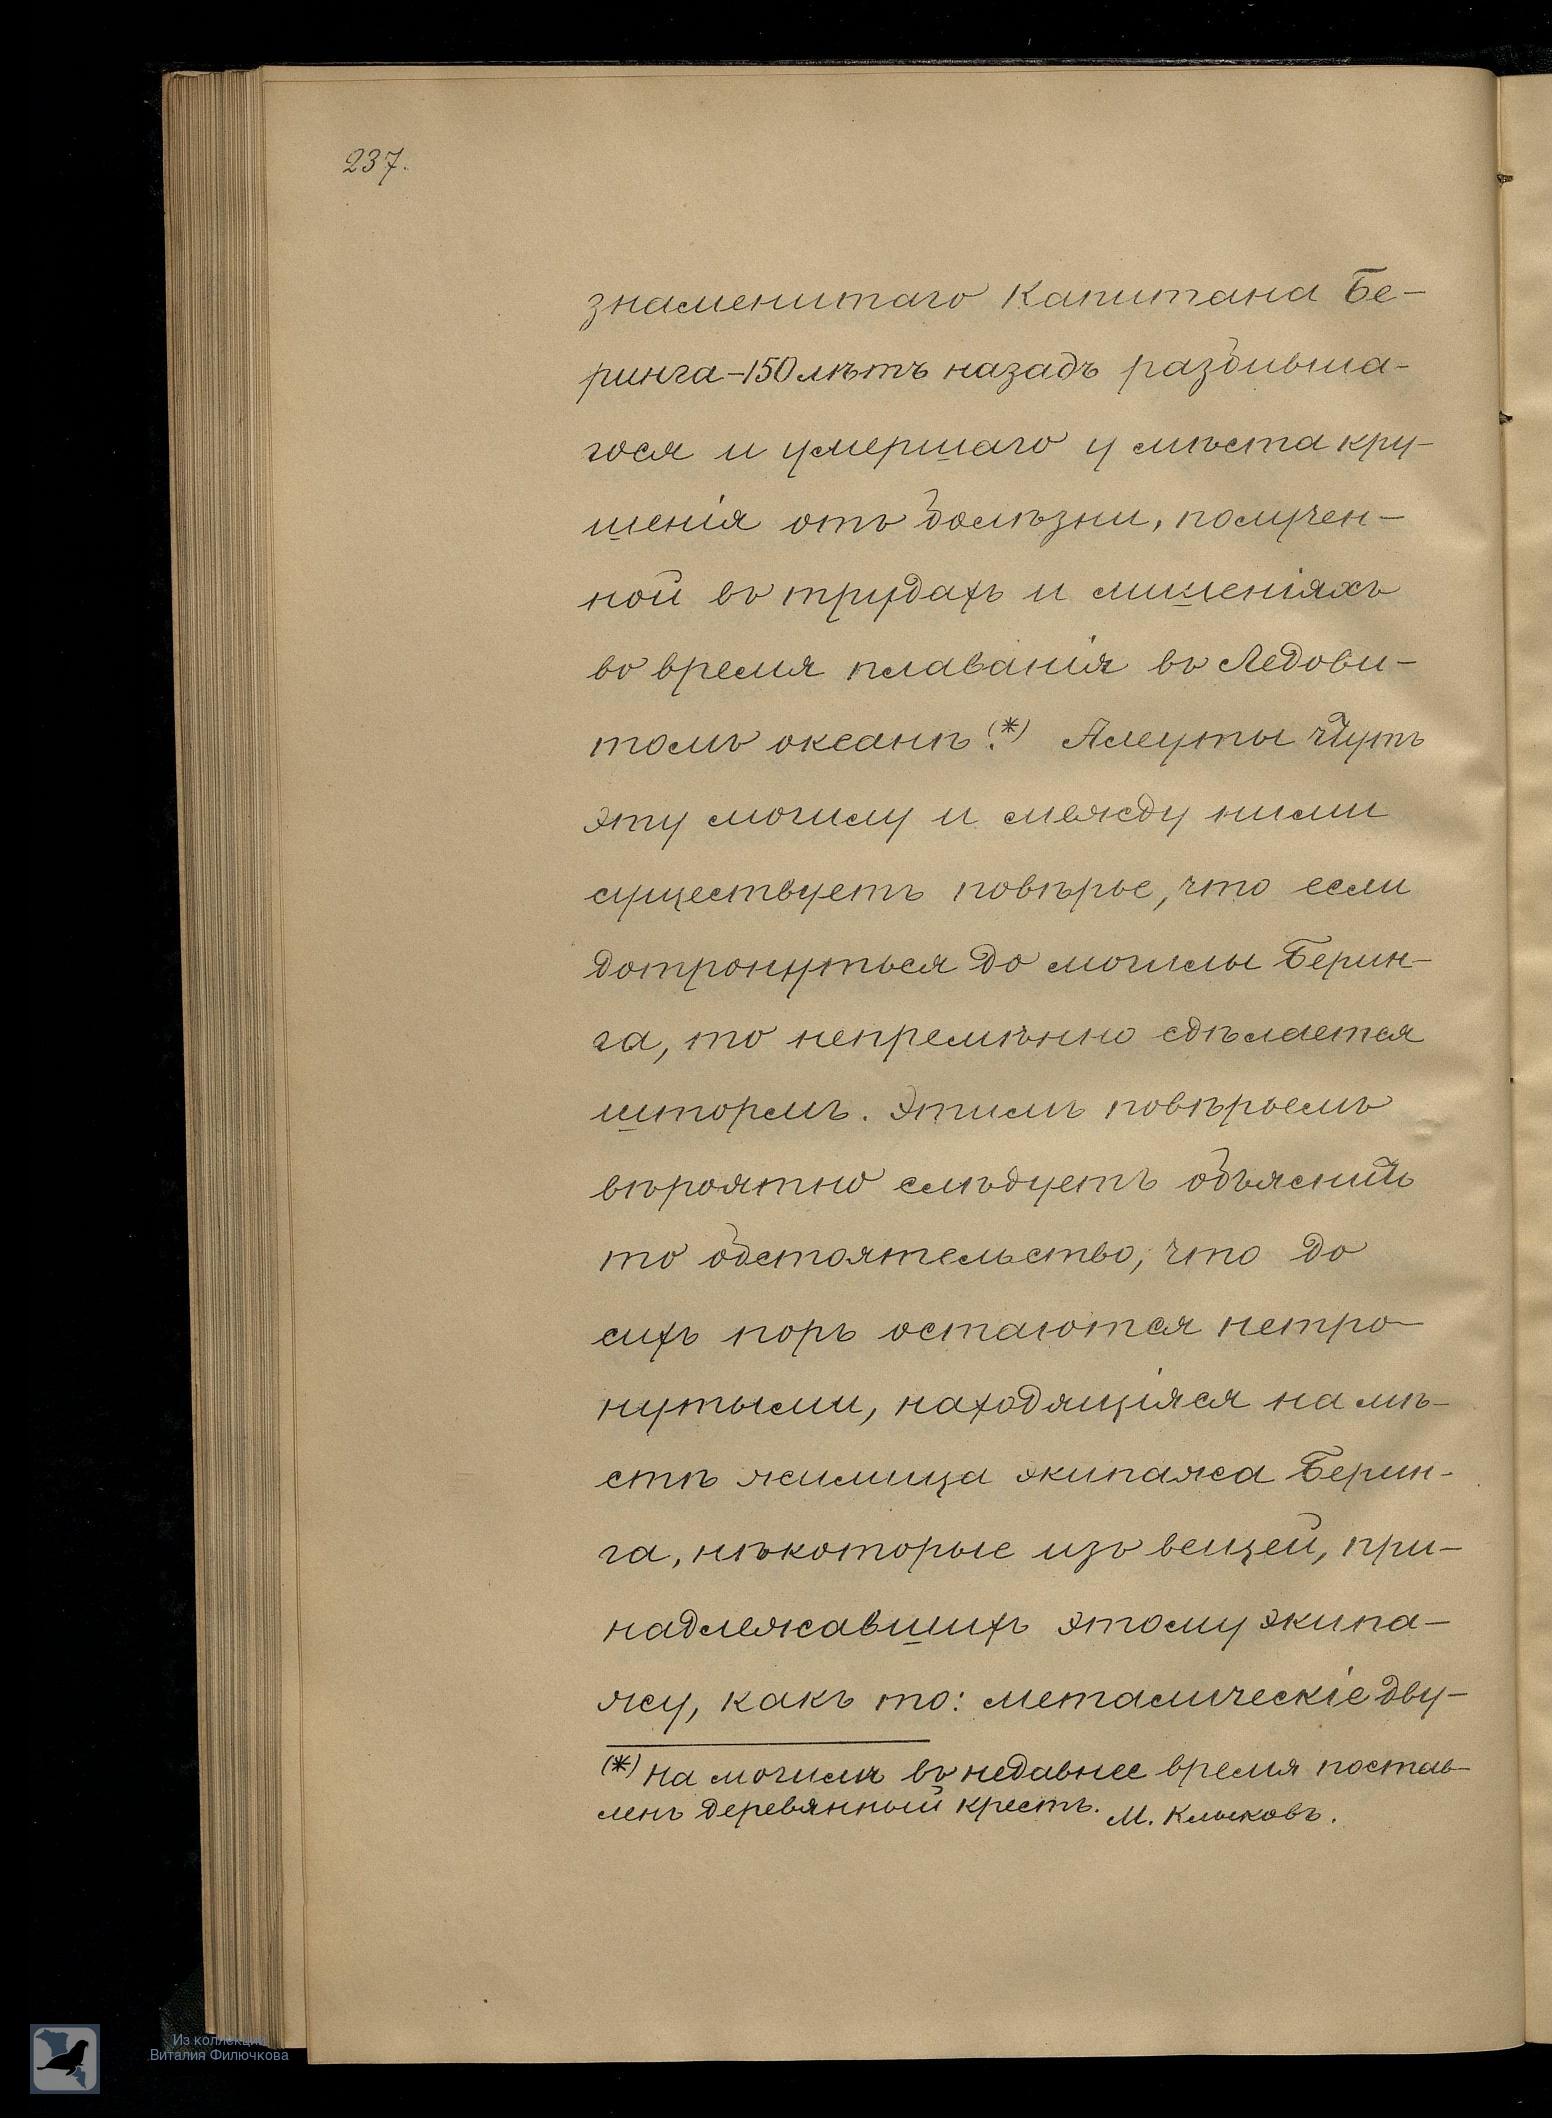 237.
знаменитаго Капитана Бе-
ринга-150 лѣтъ назадъ разбивша-
гося и умершаго у мѣста кру-
шенія отъ болѣзни, получен-
ной въ трудахъ и лишеніяхъ
во время плаванія въ Ледови-
томъ океанѣ.(*) Алеуты чтутъ
эту могилу и между ними
существуетъ повѣрье, что если
дотронуться до могилы Берин-
га, то непремѣнно сдѣлается
штормъ. Этимъ повѣрьемъ
вѣроятно слѣдуетъ объяснить
то обстоятельство, что до
сихъ поръ остаются нетро-
нутыми, находящіяся на мѣ-
стѣ жилища экипажа Берин-
га, нѣкоторые изъ вещей, при-
надлежавшихъ этому экипа-
жу, какъ то: металическіе дву-
(*) На могилѣ въ недавнее время постав-
ленъ деревянный крестъ. М. Клыковъ.
Из коллекции
Виталия Филючкова